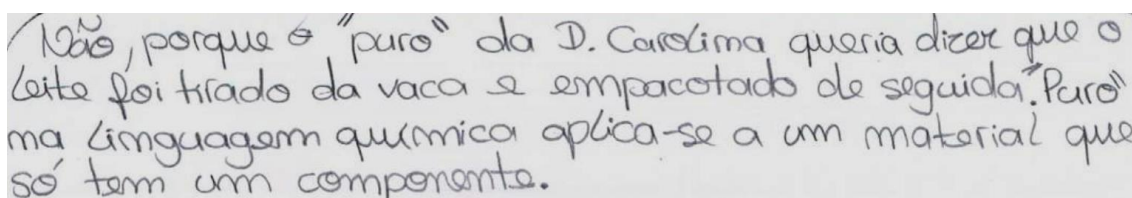 Não, porque o "puro" da D. Carolina queria dizer que o
leite foi tirado da vaca e empacotado de seguida. "Puro"
na linguagem química aplica-se a um material que
só tem um componente.